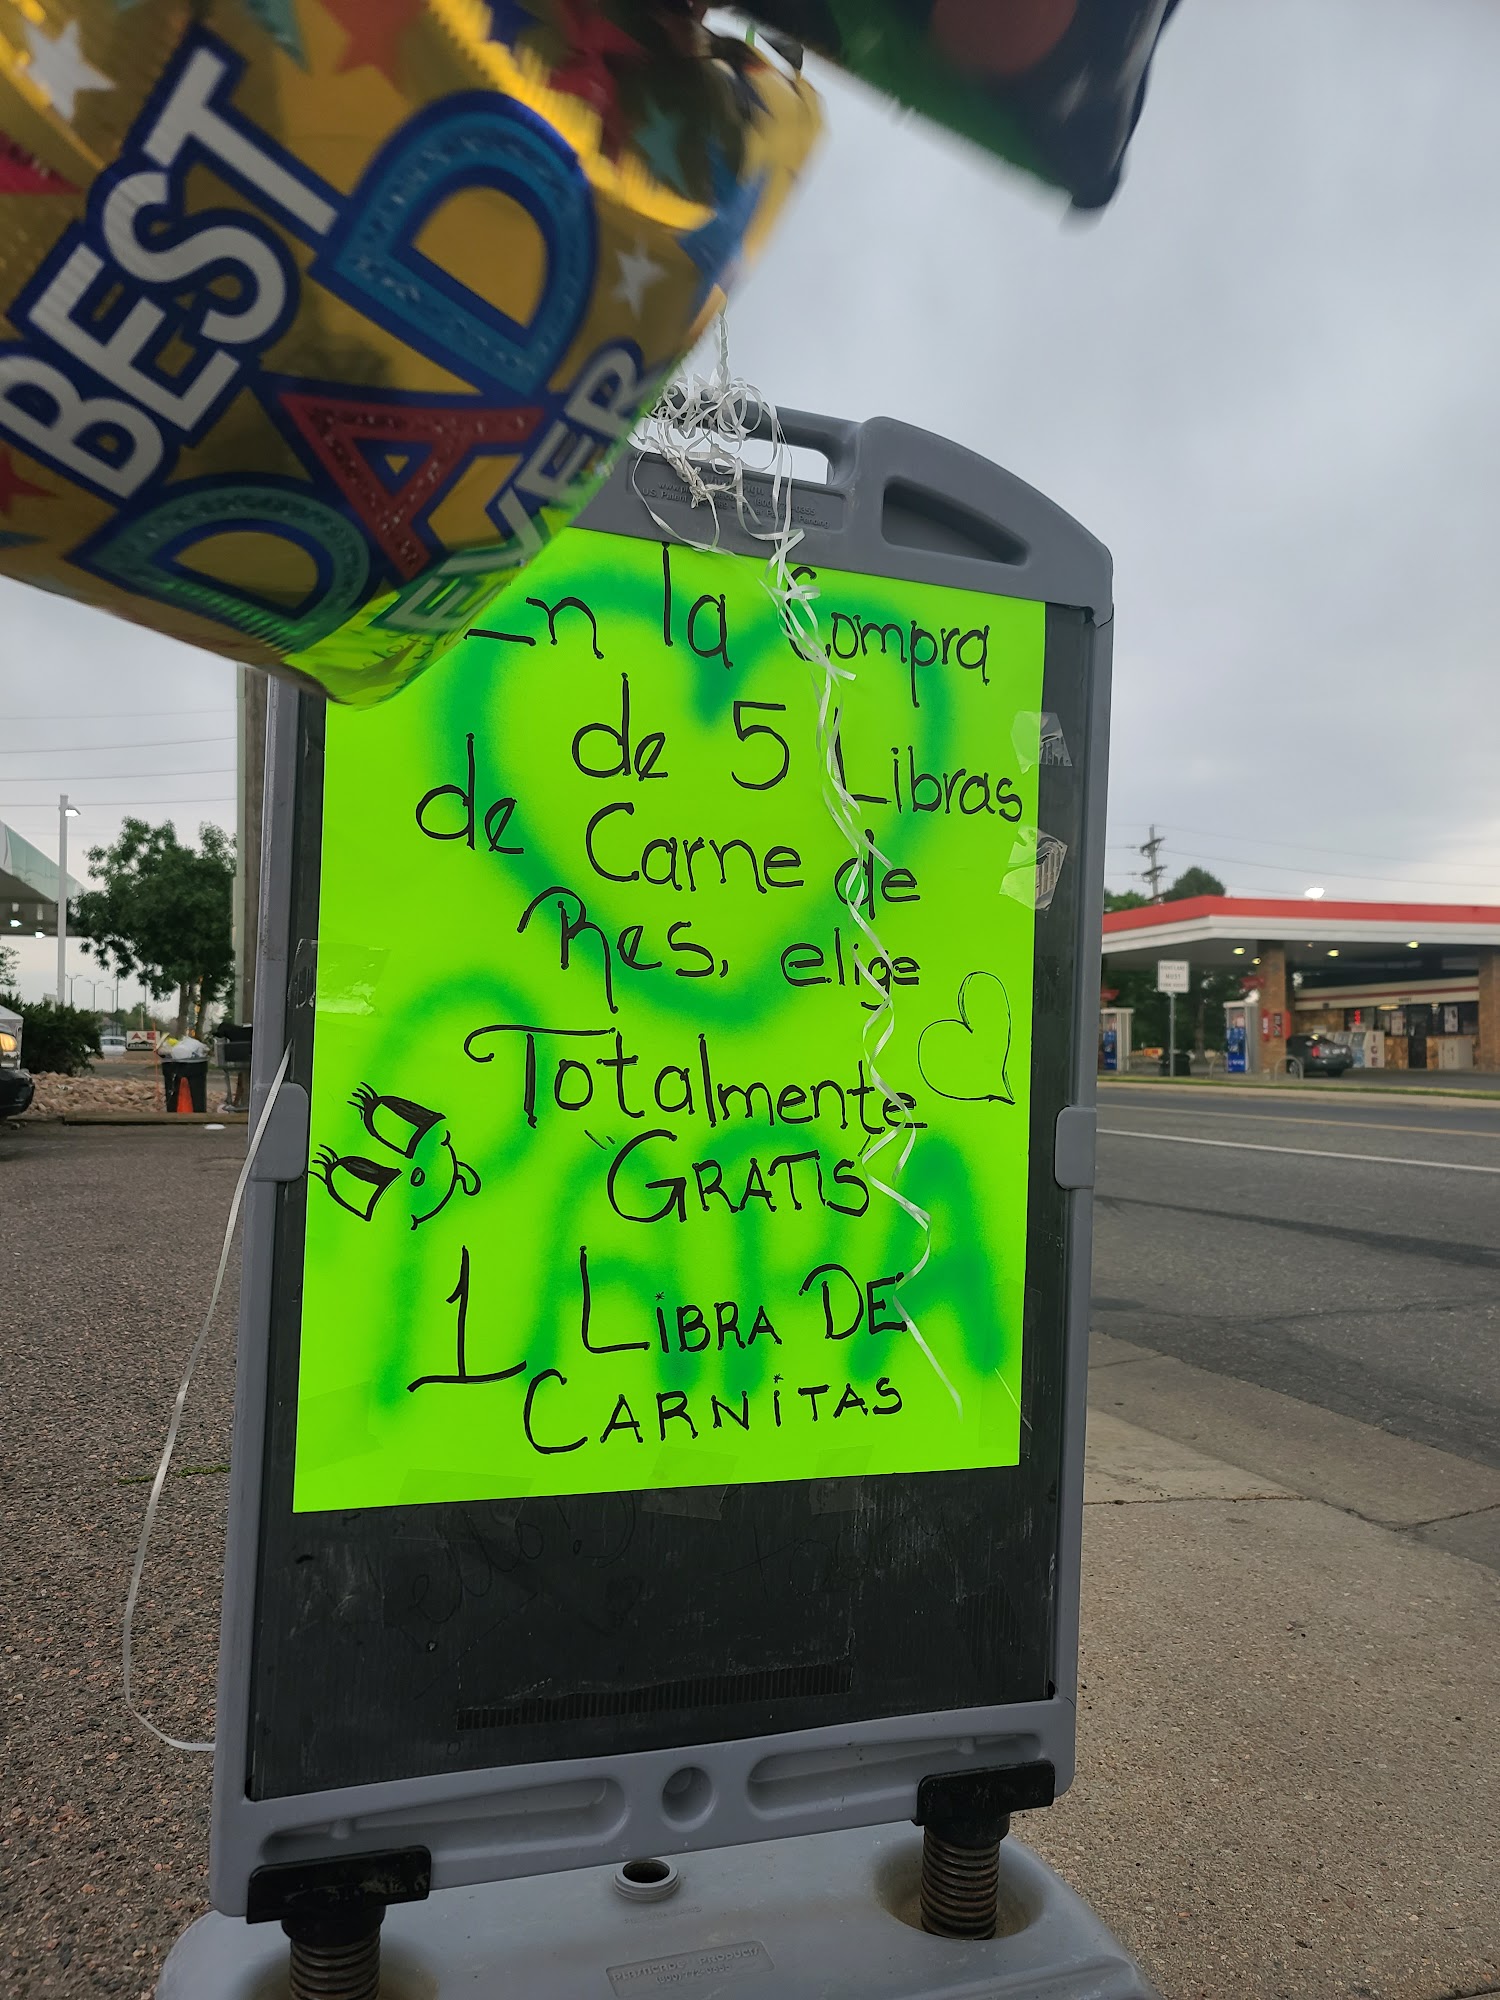 BEST
DAD
EVER
En la Compra
de 5 Libras
de Carne de
Res, elige
Totalmente
"GRATIS"
1 LiBRA DE
CARNiTAS